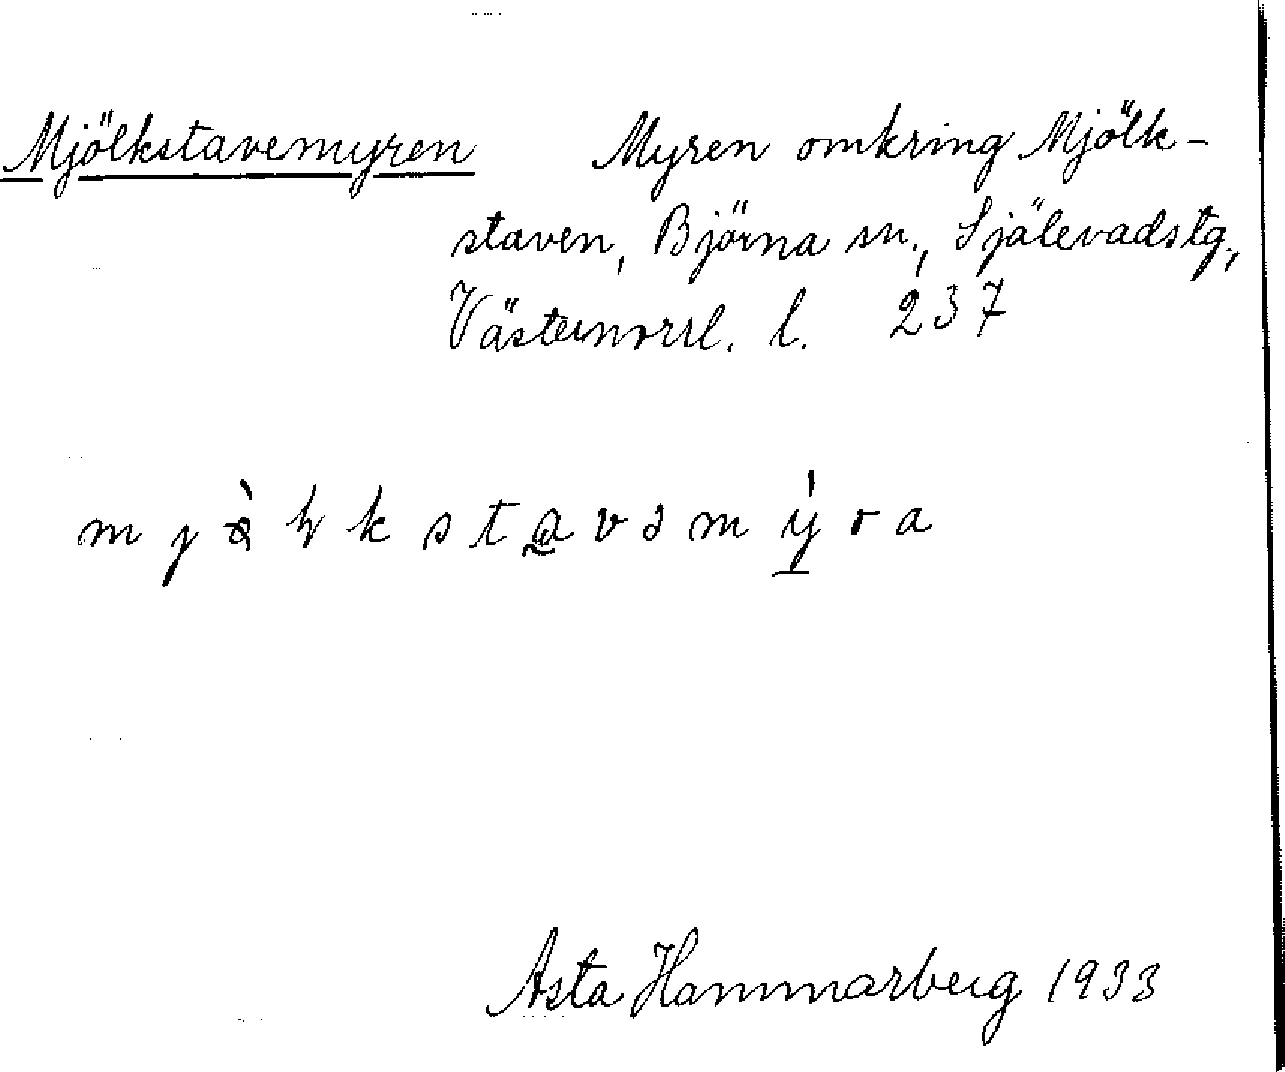 Mjölkstavemyren Myren omkring Mjölk-
staven, Björna sn., Själevadstg,
Västernorrl. l. 237
Asta Hammarberg 1933